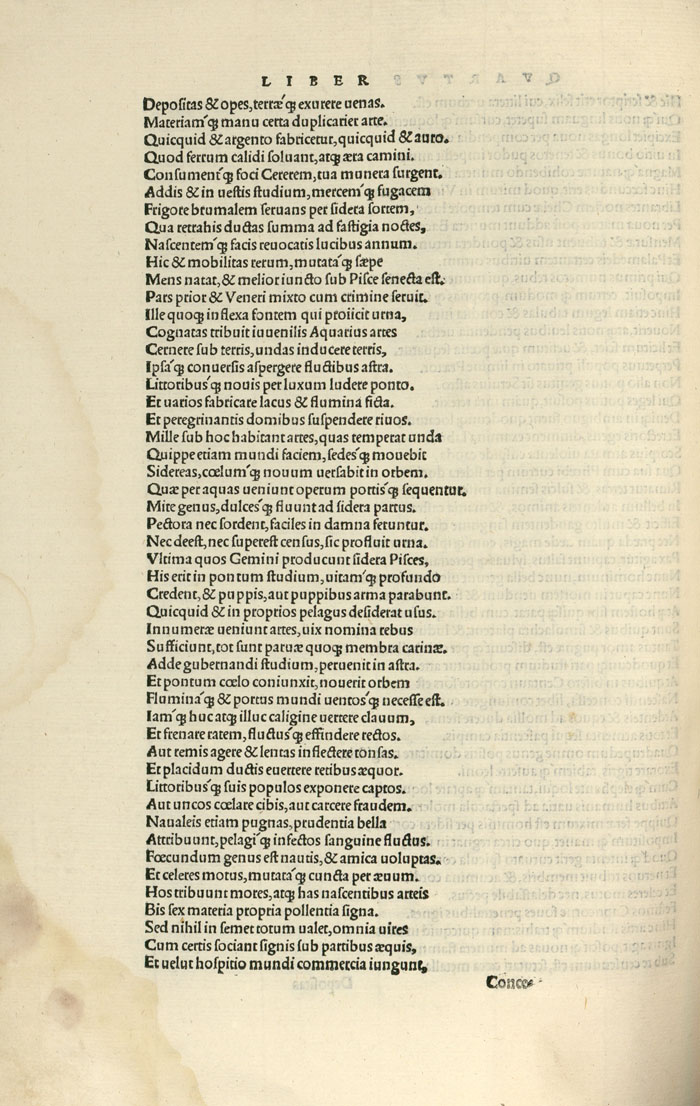 LIBER
Depositas & opes, terræq́ꝫ exurere uenas.
Materiamq́ꝫ manu certa duplicarier arte.
Quicquid & argento fabricetur, quicquid & auro.
Quod ferrum calidi soluant, atqꝫ æra camini.
Consumentq́ꝫ foci Cererem, tua munera surgent.
Addis & in uestis studium, mercemq́ꝫ fugacem
Frigore brumalem seruans per sidera sortem,
Qua retrahis ductas summa ad fastigia noctes,
Nascentemq́ꝫ facis reuocatis lucibus annum.
Hic & mobilitas rerum, mutataq́ꝫ sæpe
Mens natat, & melior iuncto sub Pisce senecta est.
Pars prior & Veneri mixto cum crimine seruit.
Ille quoqꝫ inflexa fontem qui proiicit urna,
Cognatas tribuit iuuenilis Aquarius artes
Cernere sub terris, undas inducere terris,
Ipsaq́ꝫ conuersis aspergere fluctibus astra.
Littoribusq́ꝫ nouis per luxum ludere ponto.
Et uarios fabricare lacus & flumina ficta.
Et peregrinantis domibus suspendere riuos.
Mille sub hoc habitant artes, quas temperat unda
Quippe etiam mundi faciem, sedesq́ꝫ mouebit
Sidereas, cœlumq́ꝫ nouum uersabit in orbem.
Quæ per aquas ueniunt operum pontisq́ꝫ sequentur.
Mite genus, dulcesq́ꝫ fluunt ad sidera partus.
Pectora nec sordent, faciles in damna feruntur.
Nec deest, nec superest census, sic profluit urna.
Vltima quos Gemini producunt sidera Pisces,
His erit in pontum studium, uitamq́ꝫ profundo
Credent, & puppis, aut puppibus arma parabunt.
Quicquid & in proprios pelagus desiderat usus.
Innumeræ ueniunt artes, uix nomina rebus
Sufficiunt, tot sunt paruæ quoqꝫ membra carinæ.
Adde gubernandi studium, peruenit in astra.
Et pontum cœlo coniunxit, nouerit orbem
Fluminaq́ꝫ & portus mundi uentosq́ꝫ necesse est.
Iamq́ꝫ huc atqꝫ illuc caligine uertere clauum,
Et frenare ratem, fluctusq́ꝫ effindere rectos.
Aut remis agere & lentas inflectere tonsas.
Et placidum ductis euertere retibus æquor.
Littoribusq́ꝫ suis populos exponere captos.
Aut uncos cœlare cibis, aut carcere fraudem.
Naualeis etiam pugnas, prudentia bella
Attribuunt, pelagiq́ꝫ infectos sanguine fluctus.
Fœcundum genus est nautis, & amica uoluptas.
Et celeres motus, mutataq́ꝫ cuncta per æuum.
Hos tribuunt mores, atqꝫ has nascentibus arteis
Bis sex materia propria pollentia signa.
Sed nihil in semet totum ualet, omnia uires
Cum certis sociant signis sub partibus æquis,
Et uelut hospitio mundi commercia iungunt,
Conce-